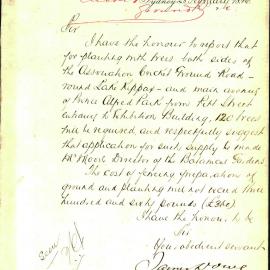 Sydney 25 February 1880
Sir
I have the honour to report that
for planting with trees both sides of
the Association Cricket Ground Road
round Lake Kippax and main avenue
of Prince Alfred Park from Pitt Street
entrance to Exhibition Building, 120 trees
will be required and respectfully suggest
that application for such supply be made
Mr Moore Director of the Botanical Gardens
The cost of fencing preparation of
ground and planting will not exceed three
hundred and sixty pounds (£360).
I have the honour to be
Sir
Your obedient servant
James